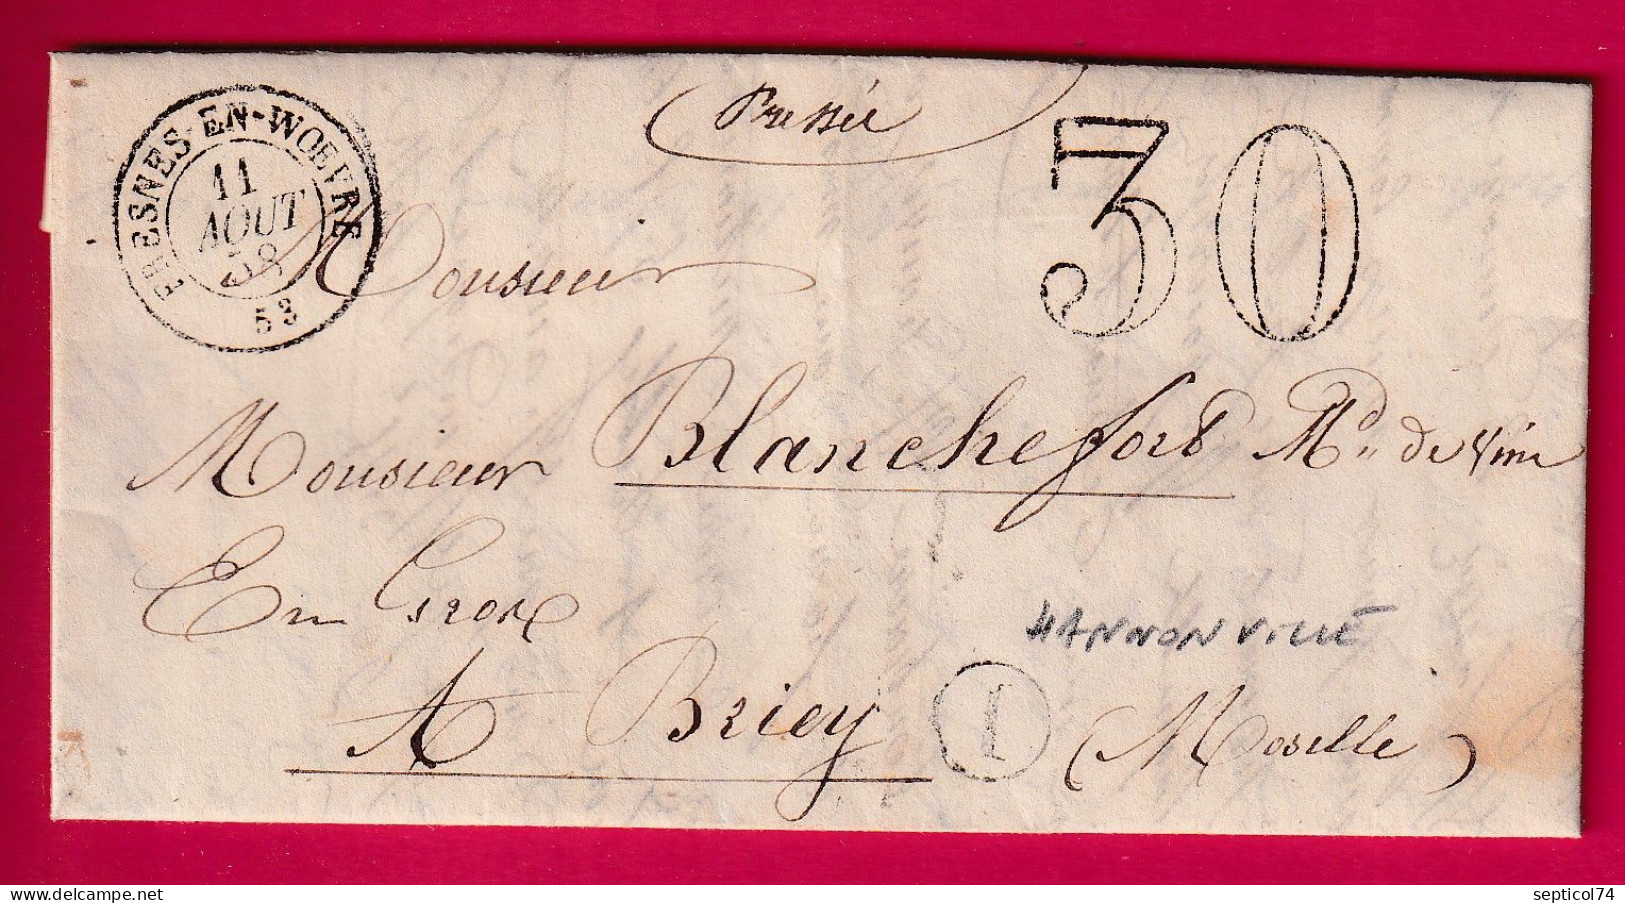 Pressée
FRESNES-EN-WOEVRE
11
AOUT
58
53
30
Monsieur
Monsieur Blanchefort Md. de Vin
En Gros
HANNONVILLE
A Briey
I
(Moselle)
septicol74